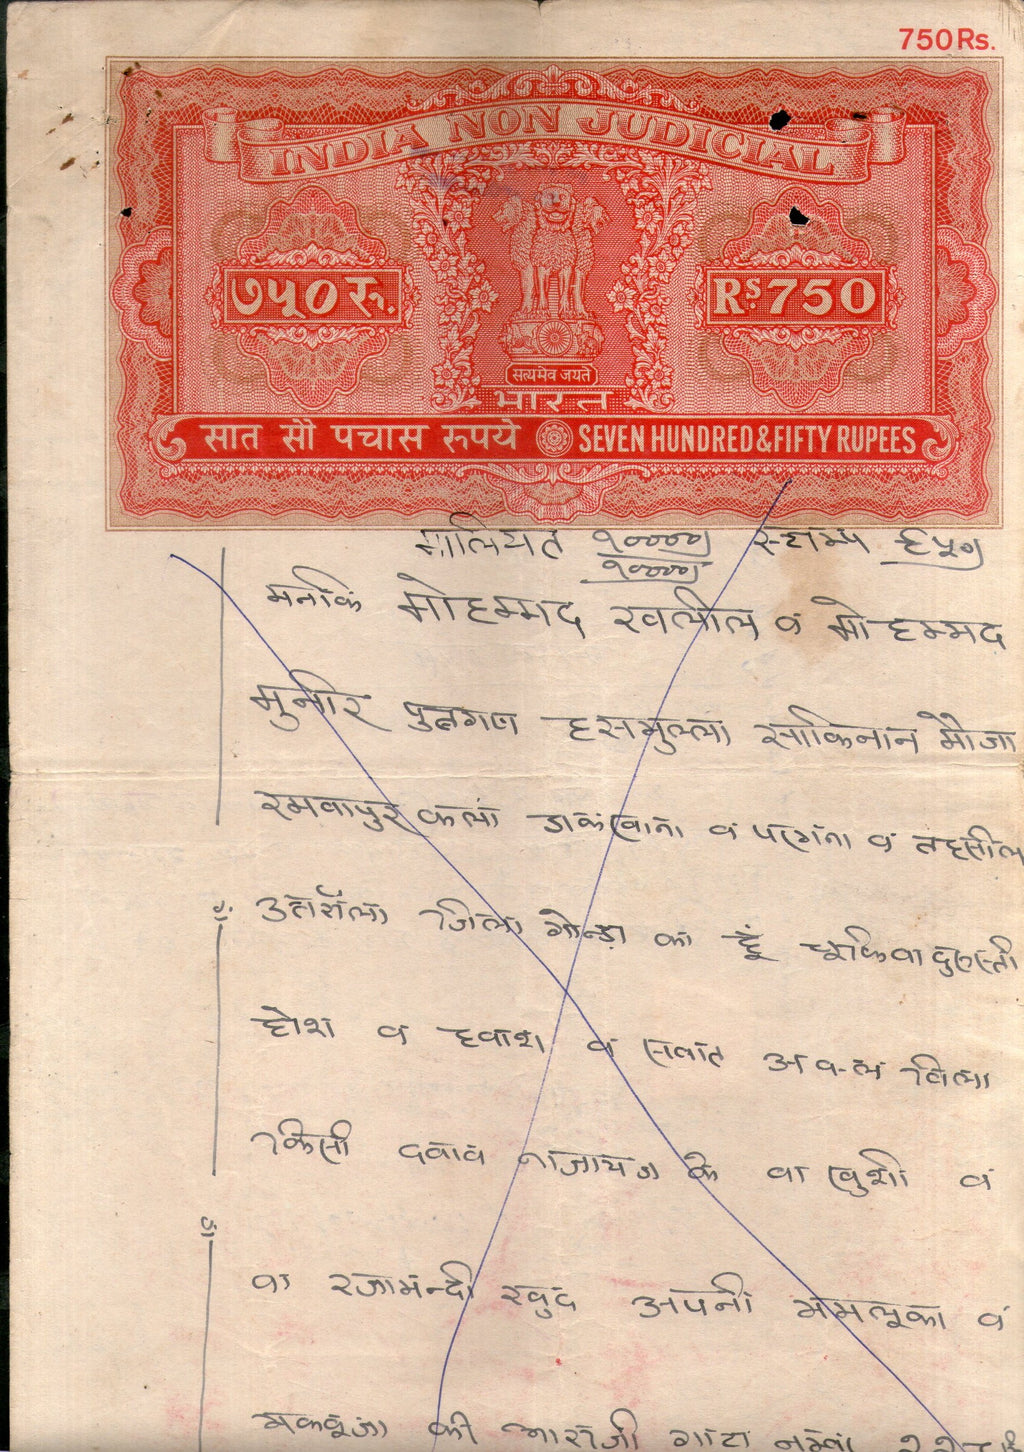 750Rs.
INDIA NON JUDICIAL
७५० रु.
Rs 750
सत्यमेव जयते
भारत
सात सौ पचास रुपये SEVEN HUNDRED & FIFTY RUPEES
मालियत १००००) स्टाम्प
१००००)
मनकि मोहम्मद खलील व मोहम्मद
मुनीर पुत्रगण हसमुल्ला साकिनान मौजा
रमवापुर कला डाकखाना व परगना व तहसील
उतरौला जिला गोन्डा का हूँ चूकि वा दुरुस्ती
होश व हवाश व अक्ल विला
किसी दवाव नाजायज के वा खुशी व
वा रजामन्दी खुद अपनी ममलूका व
मकबूजा की आराजी गाटा नम्बर